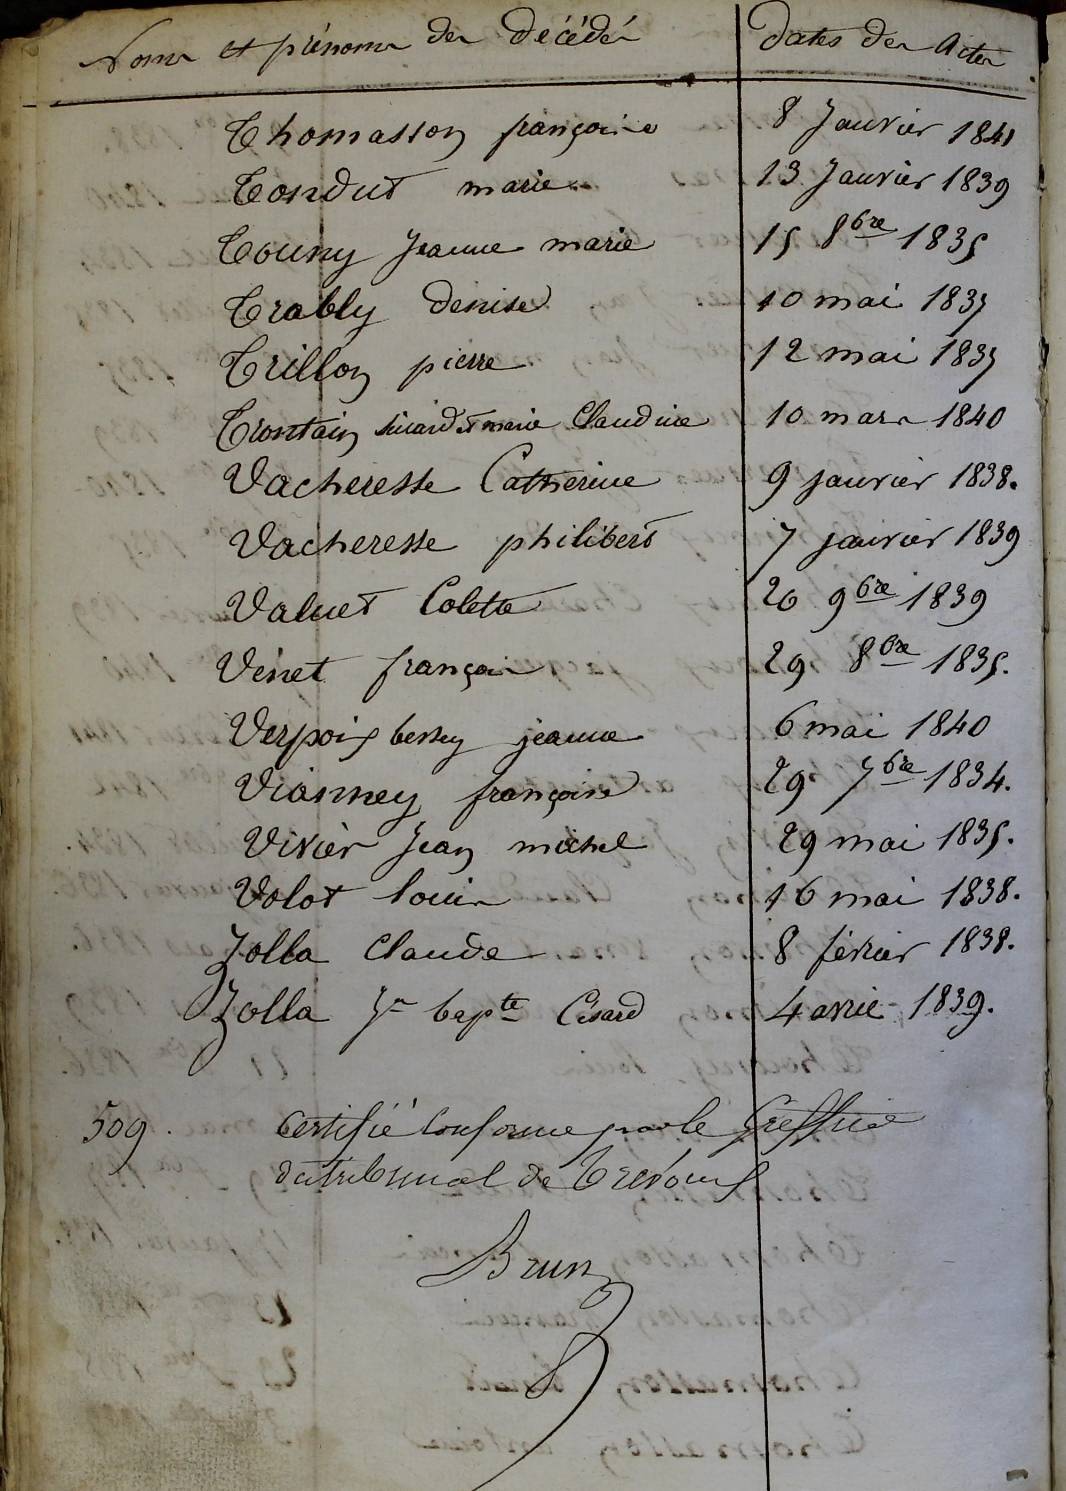 Noms et prénoms des décédés dates des Actes
Thomasson françoise 8 Janvier 1841
Tondut marie 13 Janvier 1839
Touny Jeanne marie 15 8bre 1835
Trably denise 10 mai 1837
Trillon pierre 12 mai 1837
Trontain et marie Claudine 10 mars 1840
Vacheresse Catherine 9 janvier 1838.
Vacheresse philibert 7 janvier 1839
Valuet Colette 26 9bre 1839
Vénet françois 29 8bre 1835.
Verpoix bessey jeanne 6 mai 1840
Vianney françoise 29 7bre 1834.
Vivier Jean michel 29 mai 1835.
Volot louis 16 mai 1838.
Zolla Claude 8 février 1838.
Zolla Jn bapte Césard 4 avril 1839.
509. Certifié Conforme par le Greffier
du tribunal de Trévoux
Brun